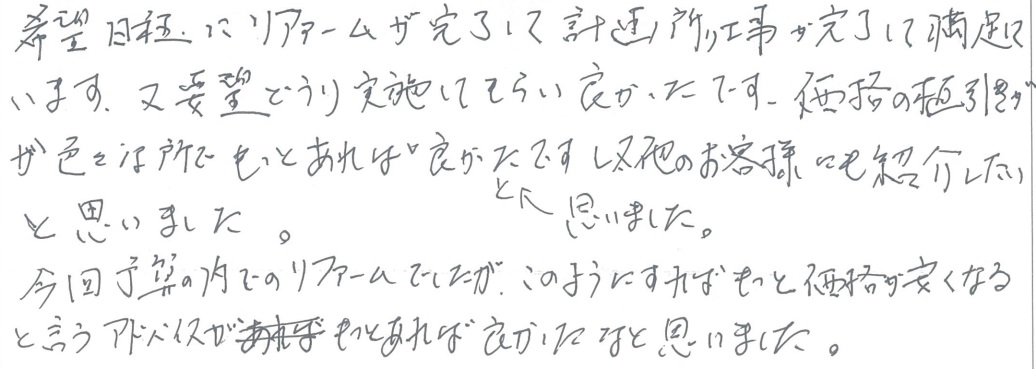 希望日程にリフォームが完了して計画所り工事が完了して満足して
います。又要望どうり実施してもらい良かったです。価格の値引きが
が色々な所でもっとあれば良かったです 又他のお客様にも紹介したい
と思いました。 と 思いました。
今回予算の内でのリフォームでしたが、このようにすればもっと価格が安くなる
と言うアドバイスがあればもっとあれば良かったなと思いました。